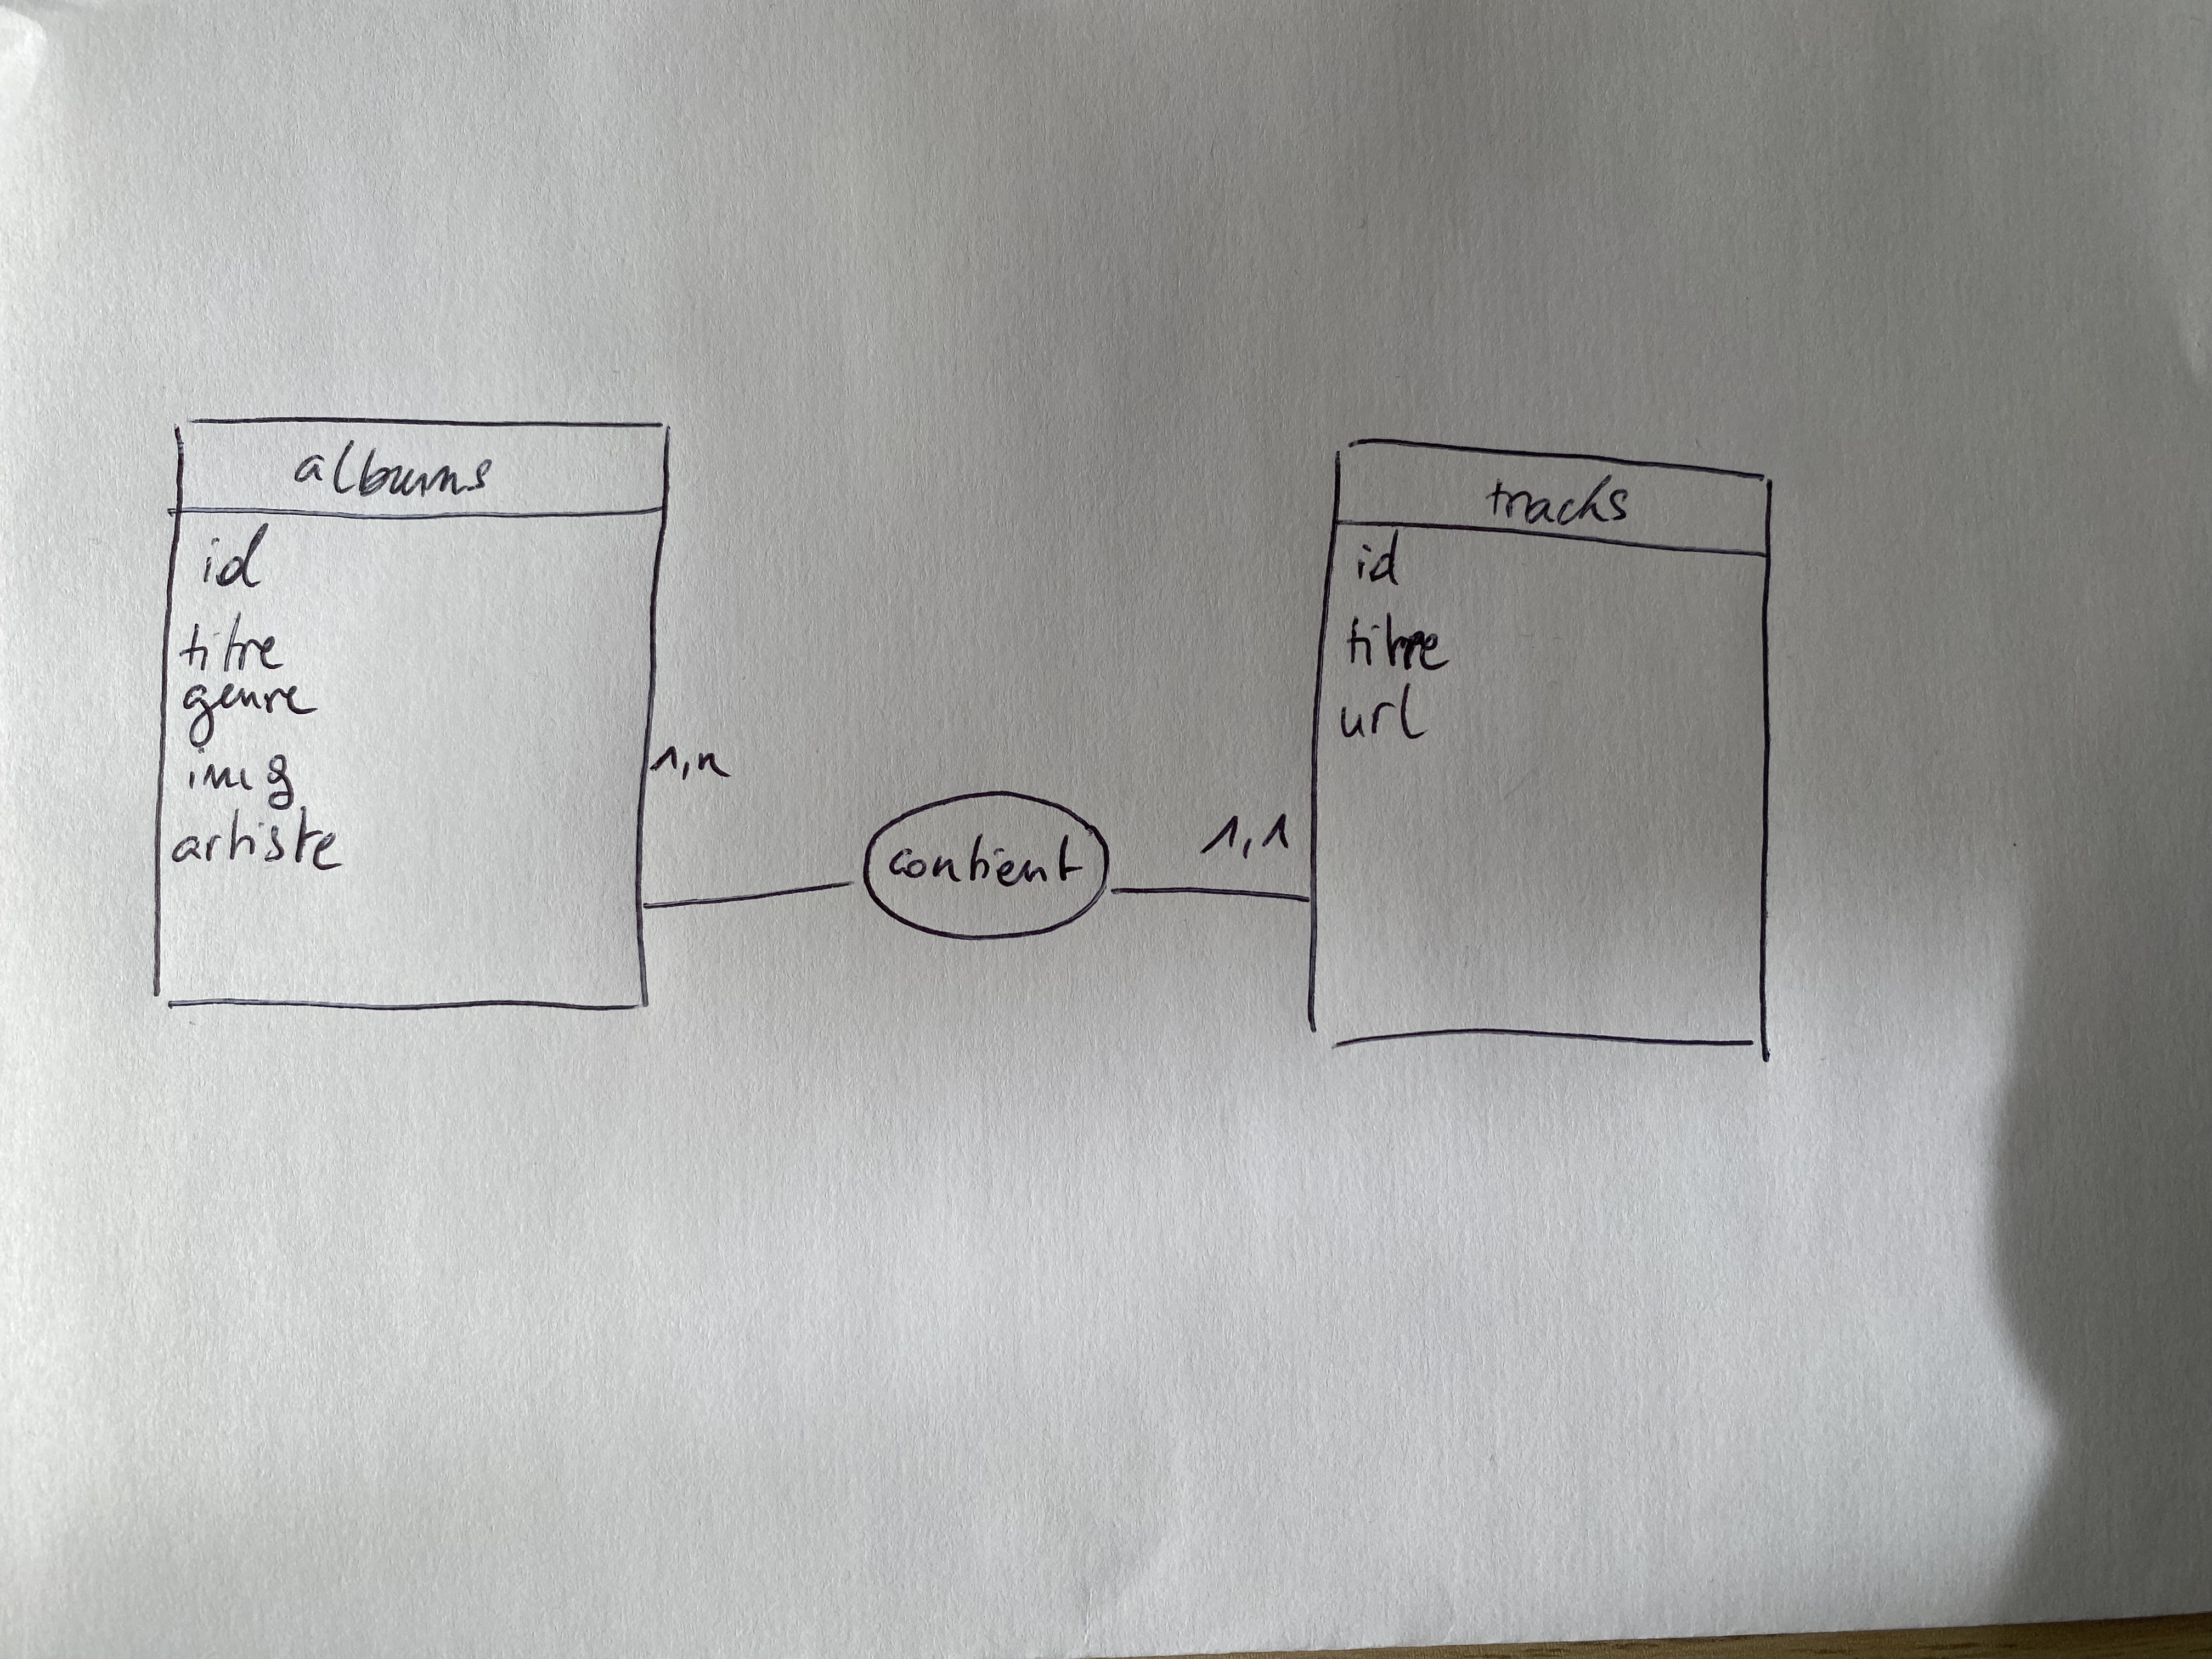 albums
id
titre
genre
img
artiste
1,n
contient
1,1
tracks
id
titre
url